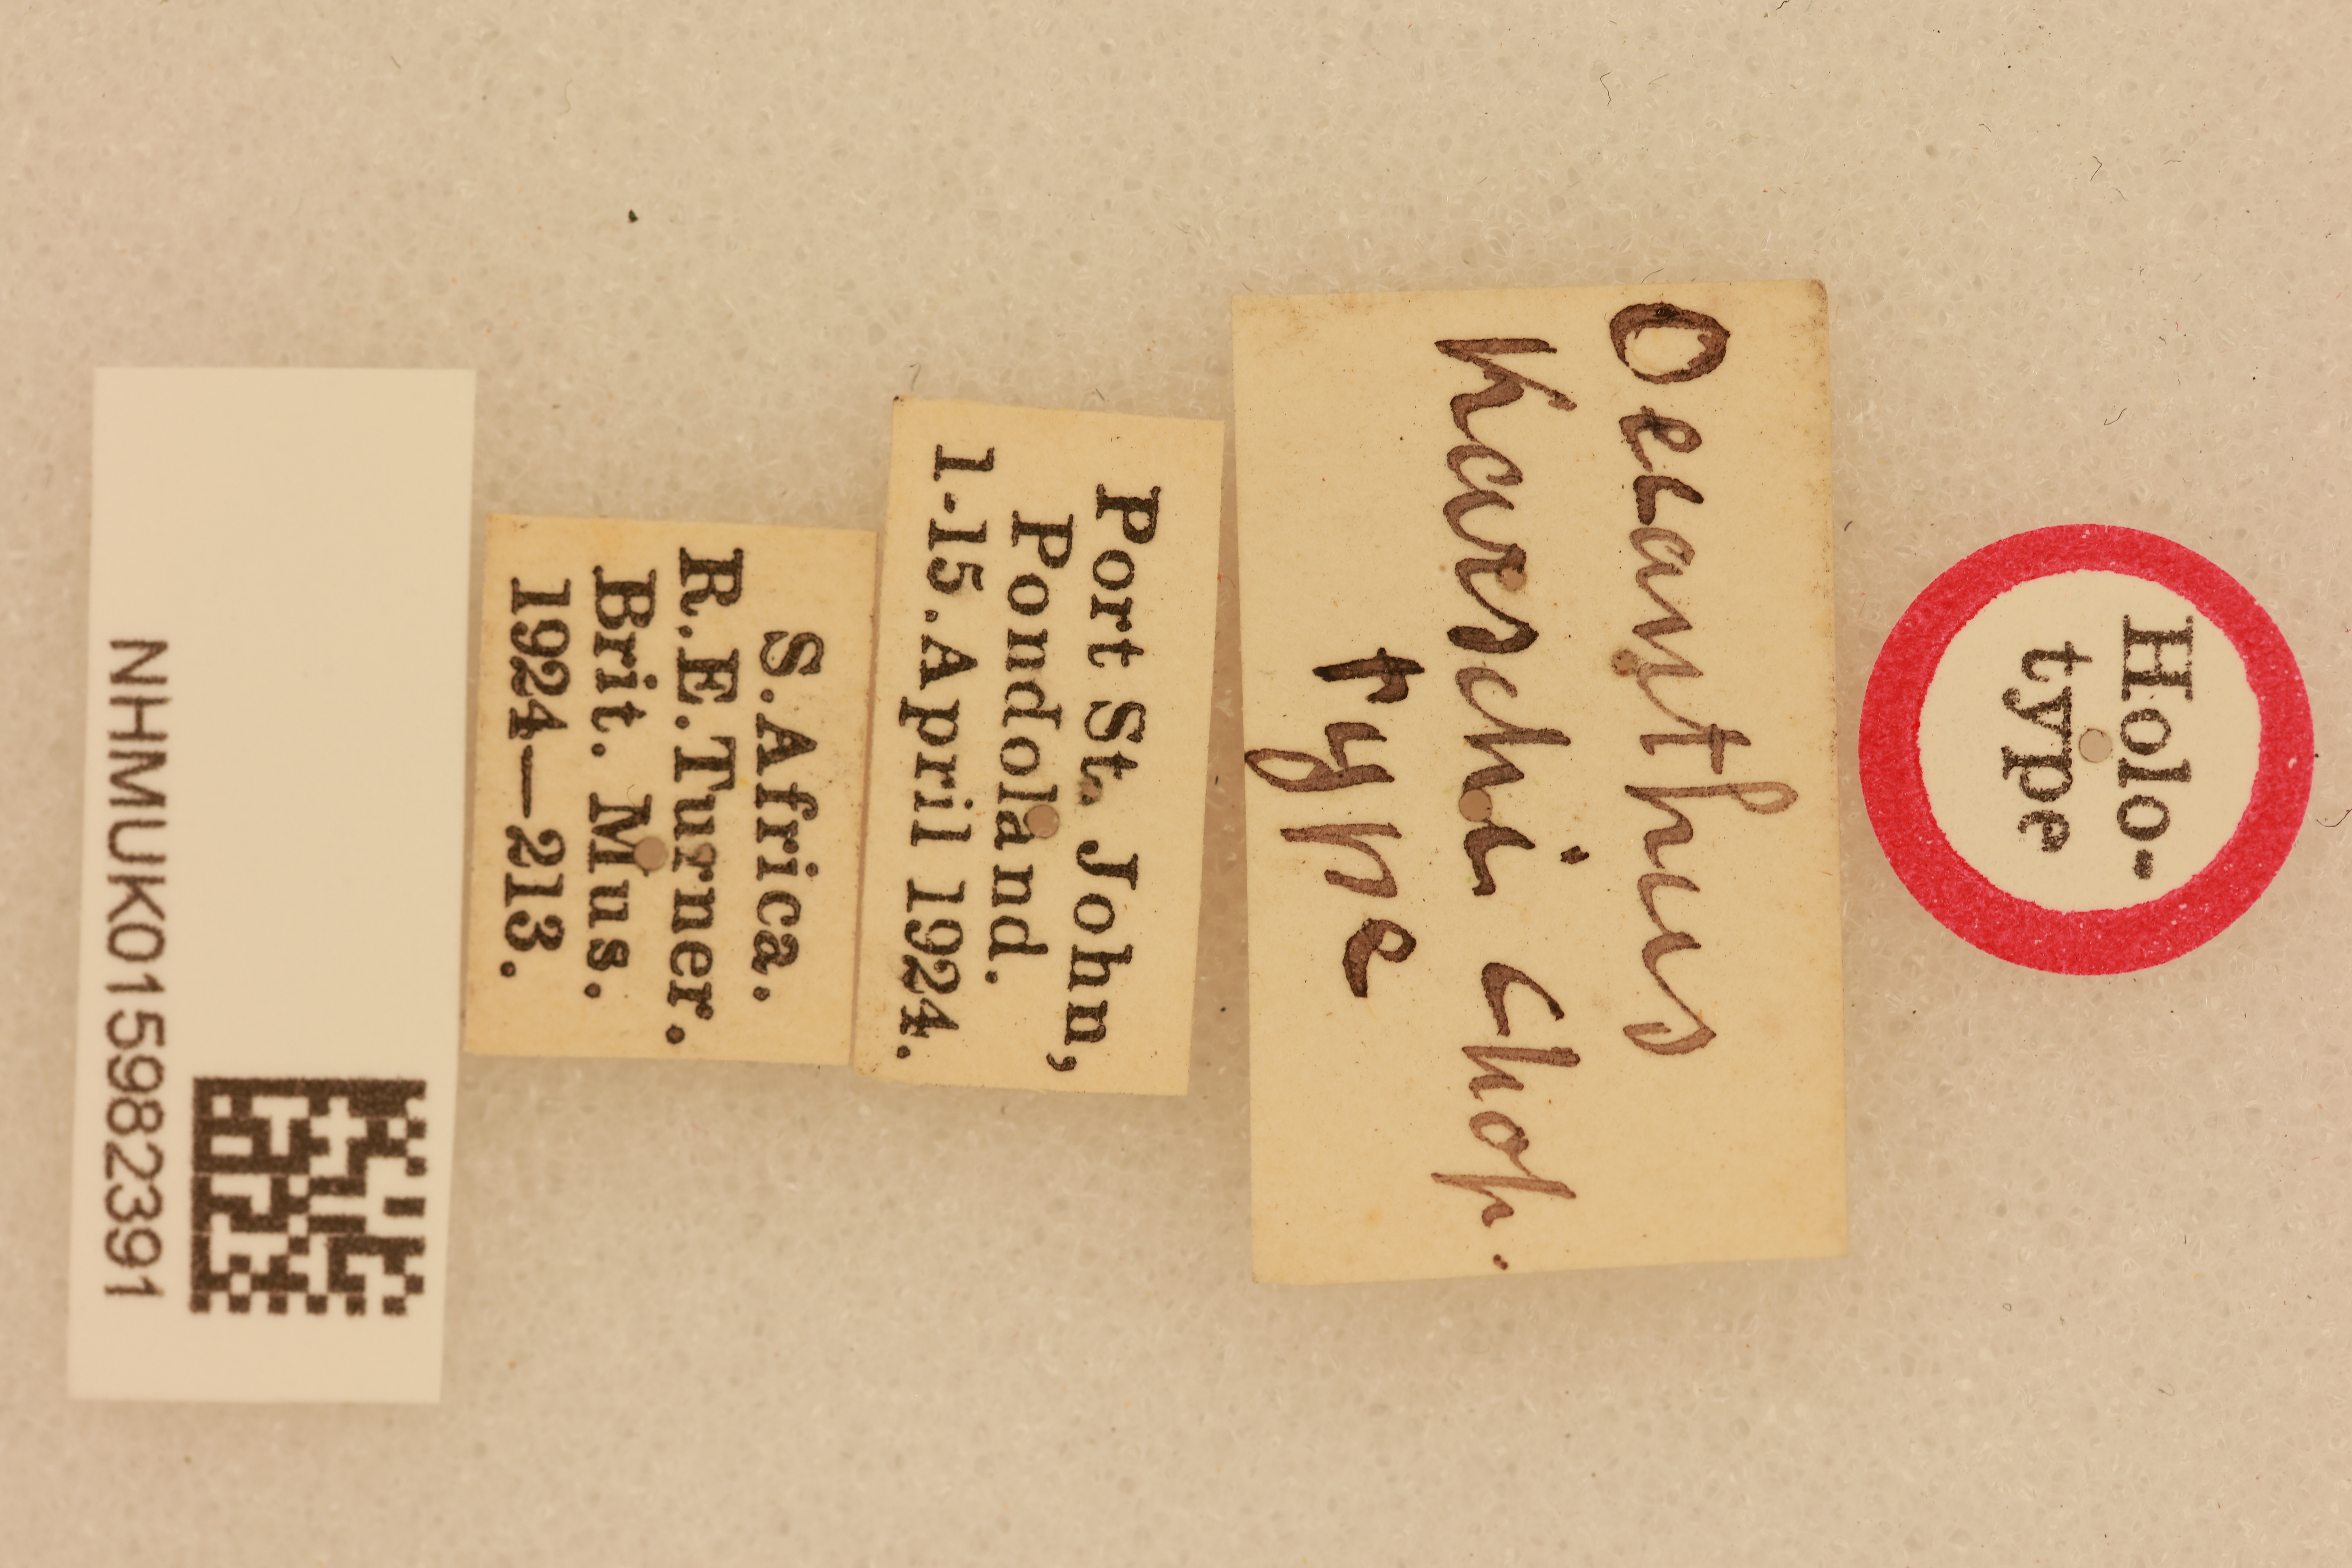 Holo-
type
Oecanthus
Karschi Chop.
type
Port St. John,
Pondoland.
1-15.April 1924.
S.Africa.
R.E.Turner.
Brit. Mus.
1924—213.
NHMUK015982391